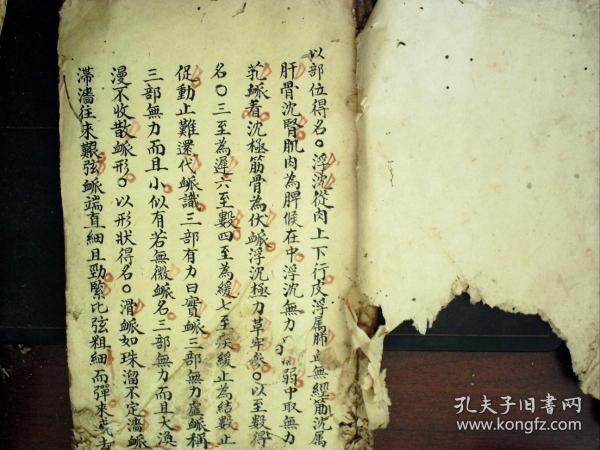 以部位得名〇浮沈從肉上下行皮浮属肺血無經筋沈属
肝骨沈腎肌肉為脾候在中浮沈無力弱中取無力
芤脈着沈極筋骨為伏脈浮沈極力革牢参〇以至数得
名〇三至為遲六至數四至為緩七至疾緩止為結數止
促動止難還代脈識三部有力曰實脈三部無力虛脈稱
三部無力而且小似有若無微脈名三部無力而且大渙
漫不收散脈形〇以形狀得名〇滑脈如珠溜不定濇脈
滯濇往來艱弦脈端直細且勁緊比弦粗細而彈來
孔夫子旧書网
www.kongfz.com